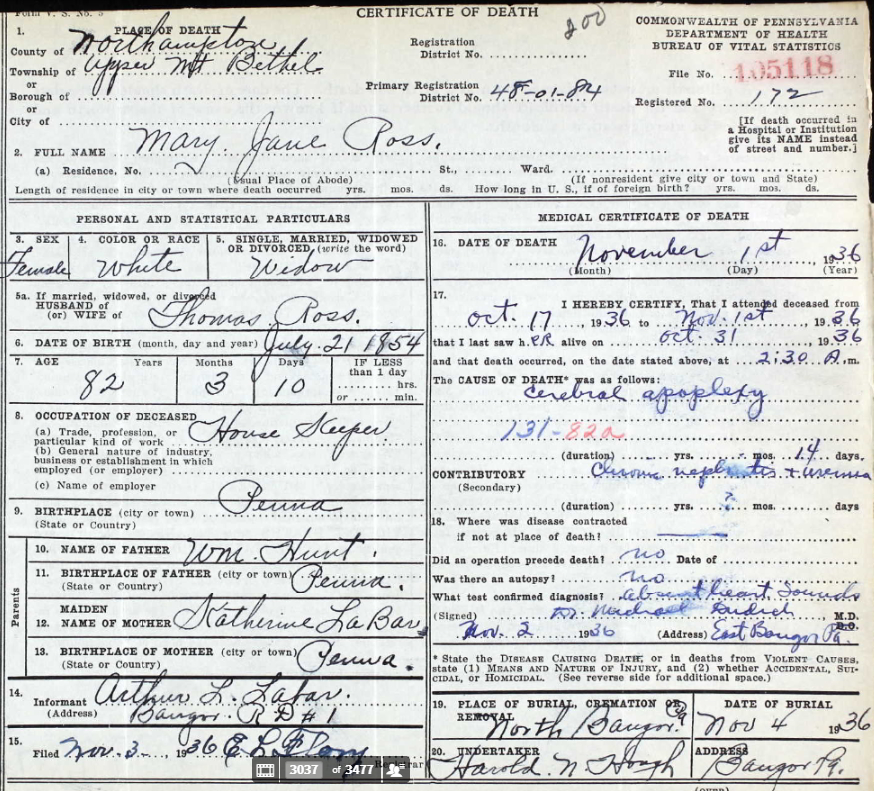 Form V. S. No. 5
CERTIFICATE OF DEATH
200
COMMONWEALTH OF PENNSYLVANIA
DEPARTMENT OF HEALTH
BUREAU OF VITAL STATISTICS
1. PLACE OF DEATH
County of Northampton
Township of Upper Mt Bethel
or
Borough of
or
City of
Registration
District No.
Primary Registration
District No. 48-01-84
File No. 105118
Registered No. 172
[If death occurred in
a Hospital or Institution
give its NAME instead
of street and number.]
2. FULL NAME Mary Jane Ross.
(a) Residence, No. St., Ward.
(Usual Place of Abode) (If nonresident give city or town and State)
Length of residence in city or town where death occurred yrs. mos. ds. How long in U. S., if of foreign birth? yrs. mos. ds.
PERSONAL AND STATISTICAL PARTICULARS
3. SEX 4. COLOR OR RACE 5. SINGLE, MARRIED, WIDOWED
OR DIVORCED, (write the word)
Female White Widow
5a. If married, widowed, or divorced
HUSBAND of
(or) WIFE of Thomas Ross.
6. DATE OF BIRTH (month, day and year) July 21 1854
7. AGE Years Months Days IF LESS
than 1 day
82 3 10 hrs.
or min.
8. OCCUPATION OF DECEASED
(a) Trade, profession, or
particular kind of work House Keeper
(b) General nature of industry,
business or establishment in which
employed (or employer)
(c) Name of employer
9. BIRTHPLACE (city or town) Penna
(State or Country)
Parents
10. NAME OF FATHER Wm. Hunt.
11. BIRTHPLACE OF FATHER (city or town) Penna.
(State or Country)
12. MAIDEN
NAME OF MOTHER Katherine LaBar
13. BIRTHPLACE OF MOTHER (city or town) Penna.
(State or Country)
14. Informant Arthur L. Labar.
(Address) Bangor. R D # 1
15. Filed Nov. 3 1936
Registrar
MEDICAL CERTIFICATE OF DEATH
16. DATE OF DEATH November 1st 1936
(Month) (Day) (Year)
17. I HEREBY CERTIFY, That I attended deceased from
Oct. 17, 1936 to Nov. 1st, 1936
that I last saw her alive on Oct. 31, 1936
and that death occurred, on the date stated above, at 2:30 A.m.
The CAUSE OF DEATH* was as follows:
Cerebral apoplexy
131-82a
(duration) yrs. mos. 14 days.
CONTRIBUTORY Chronic nephritis + uremia
(Secondary)
(duration) yrs. ? mos. days
18. Where was disease contracted
if not at place of death?
Did an operation precede death? no Date of
Was there an autopsy? no
What test confirmed diagnosis? absent heart sounds
(Signed) Dr. Michael M.D.
D.O.
Nov. 2 1936 (Address) East Bangor Pa.
* State the DISEASE CAUSING DEATH, or in deaths from VIOLENT CAUSES,
state (1) MEANS AND NATURE OF INJURY, and (2) whether ACCIDENTAL, SUI-
CIDAL, or HOMICIDAL. (See reverse side for additional space.)
19. PLACE OF BURIAL, CREMATION OR
REMOVAL North Bangor Pa
DATE OF BURIAL
Nov 4 1936
20. UNDERTAKER
Harold N. Hough
ADDRESS
Bangor Pa.
(OVER)
3037 of 3477